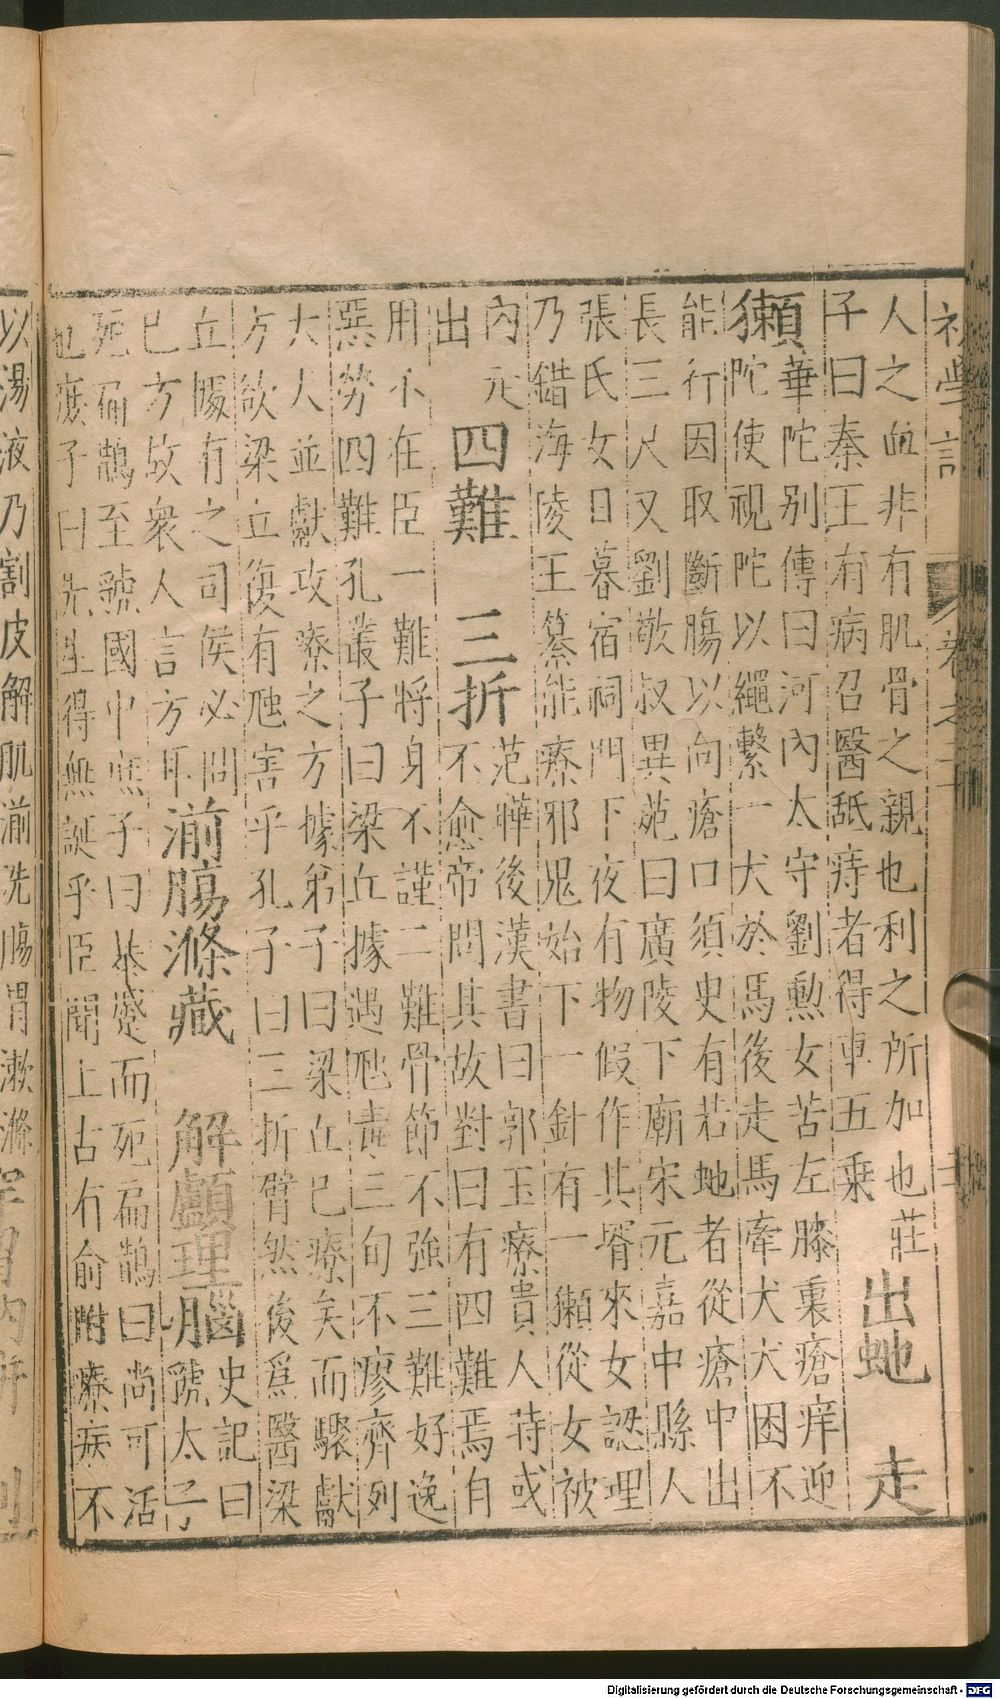 初學記 卷之二十
人之血非有肌骨之親也利之所加也莊
子曰秦王有病召醫舐痔者得車五乘
出虵 走
獺
華陀别傳曰河內太守劉勳女苦左膝裏瘡痒迎
陀使視陀以繩繫一犬於馬後走馬牽犬犬困不
能行因取斷膓以向瘡口須史有若虵者從瘡中出
長三尺又劉敬叔異苑曰廣陵下廟宋元嘉中縣人
張氏女日暮宿祠門下夜有物假作其壻來女認理
乃錯海陵王纂能療邪鬼始下一針有一獺從女被
內元
出
四難 三折
范曄後漢書曰郭玉療貴人苻或
不愈帝問其故對曰有四難焉自
用不在臣一難將身不謹二難骨節不強三難好逸
惡勞四難孔叢子曰梁丘據遇虺毒三旬不廖齊列
大人並獻攻療之方據弟子曰梁丘已療矣而驟獻
方欲梁立復有虺害乎孔子曰三折臂然後爲醫梁
丘據有之司侯必問
已方攷衆人言方耳
湔膓滌藏 解顱理腦
史記曰
虢太子
死扁鵲至虢國中庶子曰暴蹷而死扁鵲曰尚可活
也庶子曰先生得無誕乎臣聞上古有俞附療疾不
以湯液乃割皮解肌湔洗膓胃漱滌
Digitalisierung gefördert durch die Deutsche Forschungsgemeinschaft - DFG